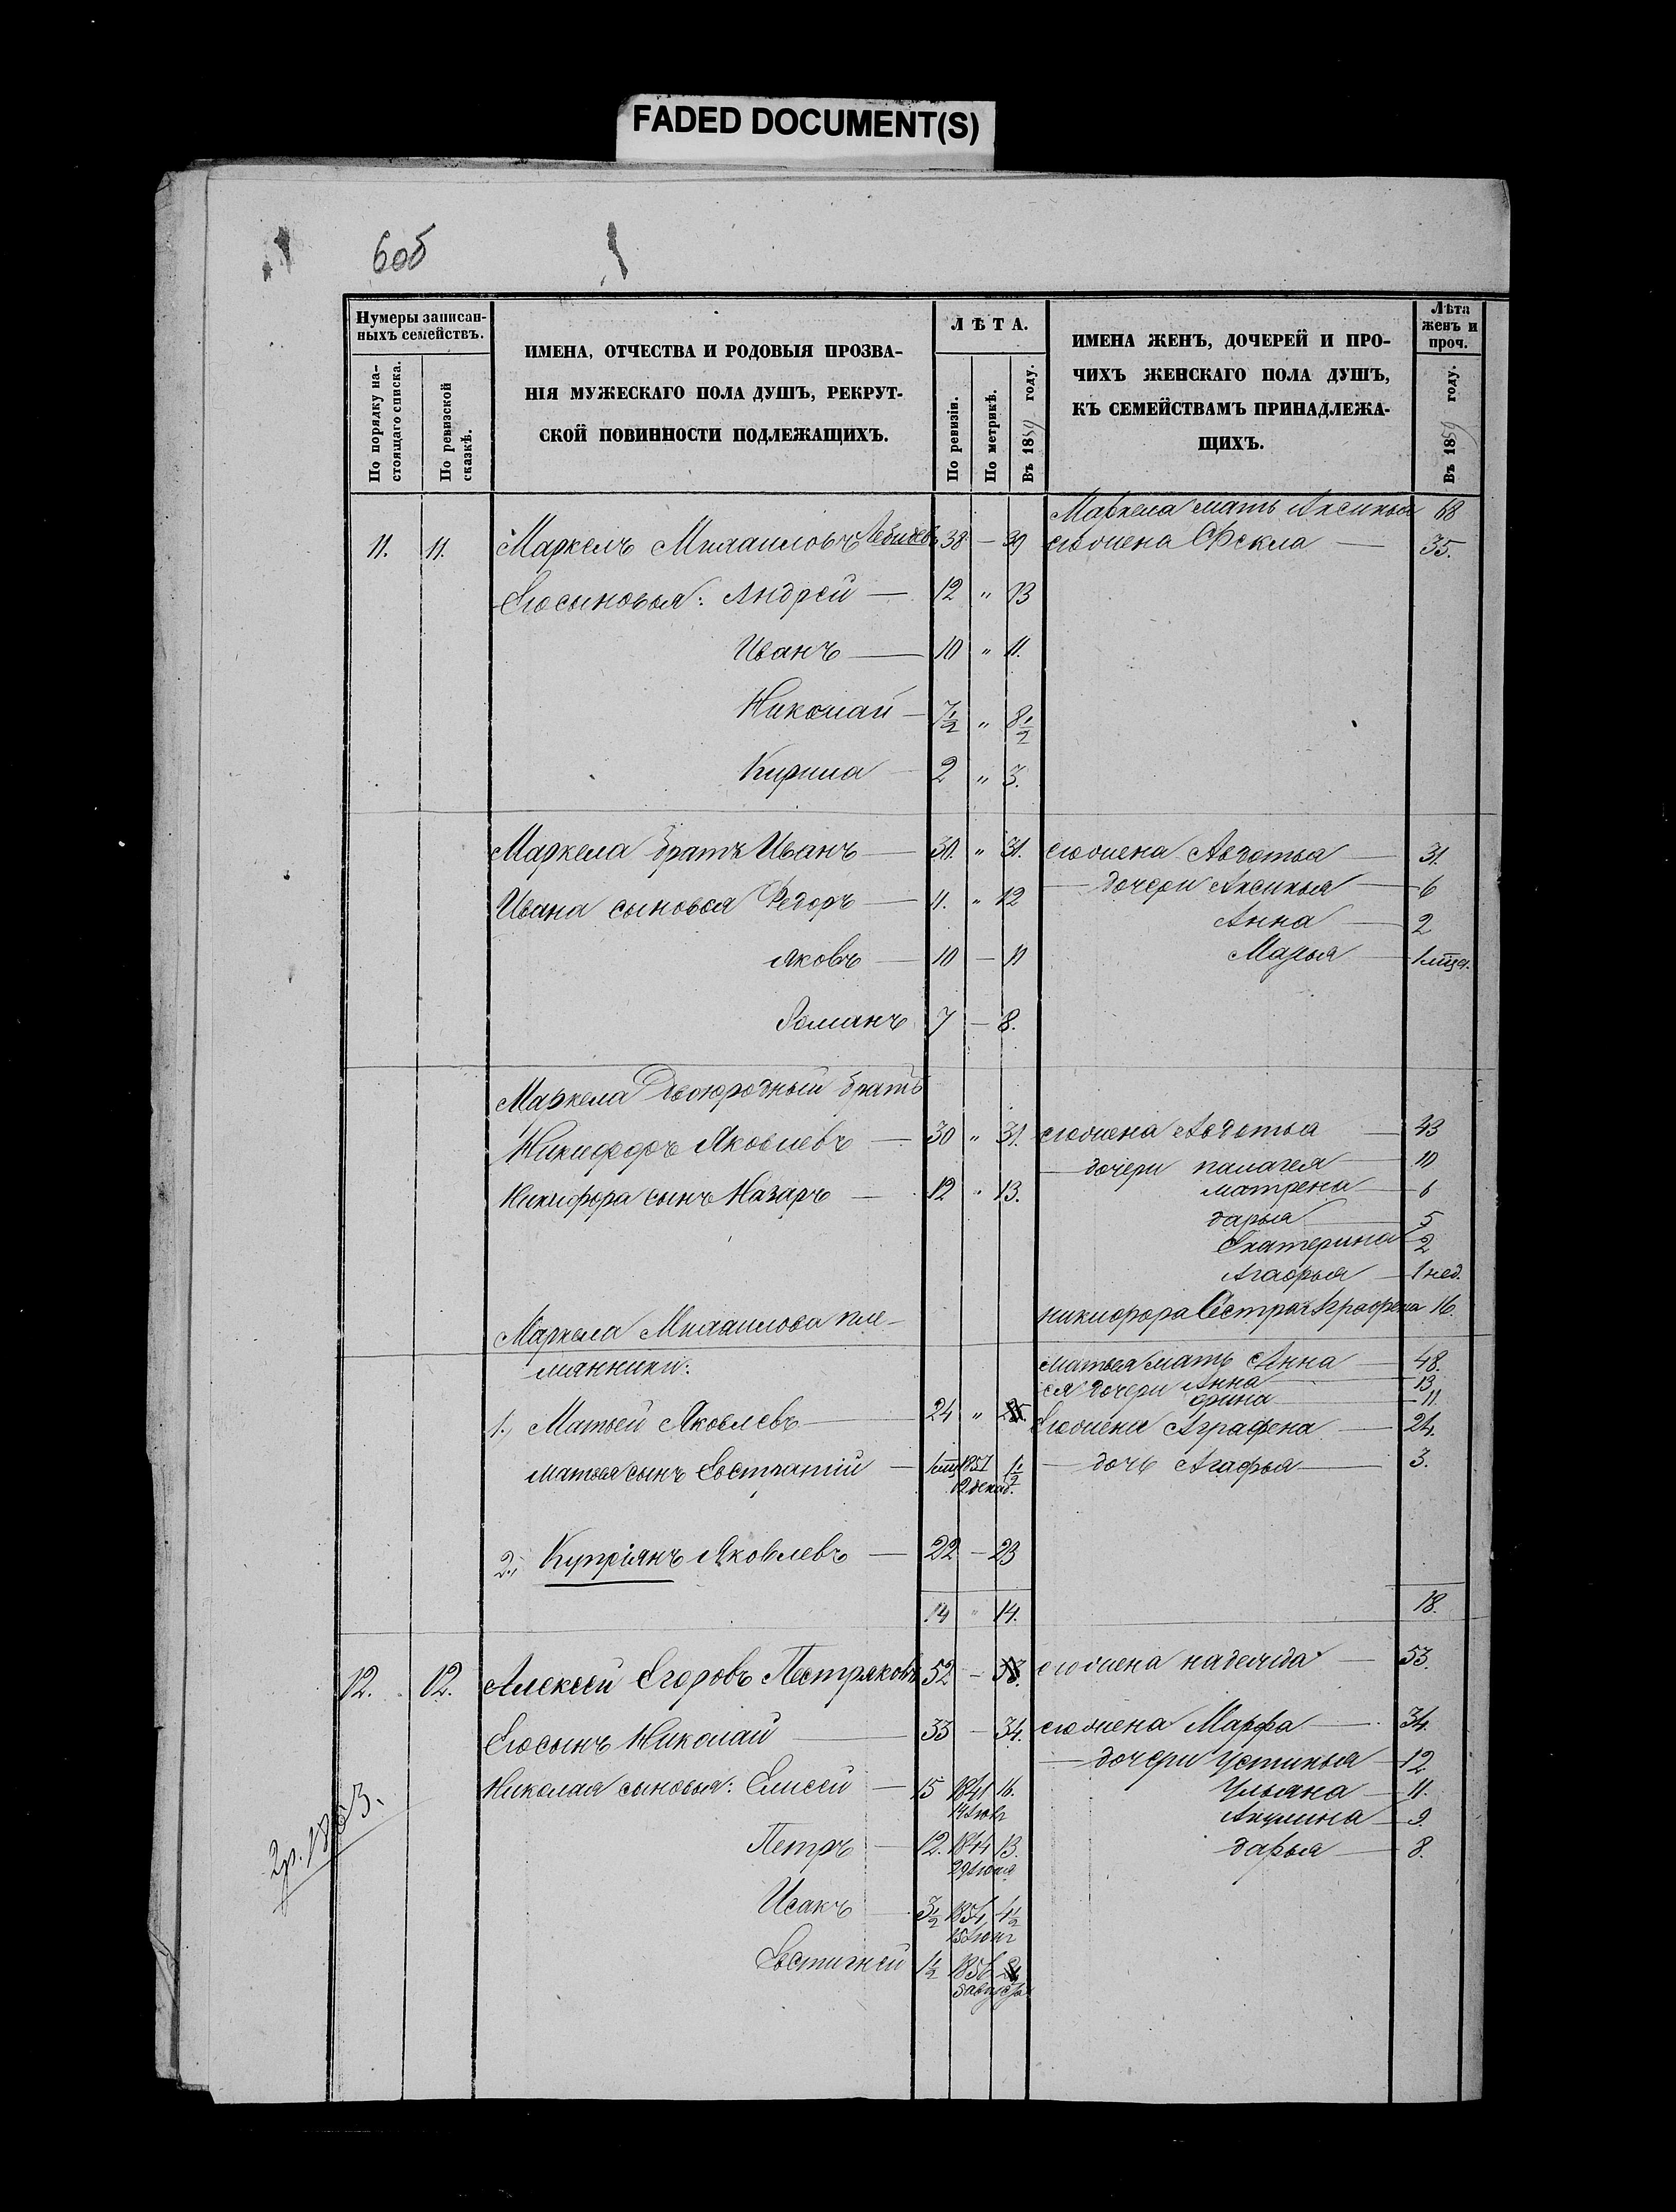 FADED DOCUMENT(S)
6об
Нумеры записан-
ныхъ семействъ.
По порядку на-
стоящаго списка.
По ревизской
сказкѣ.
ИМЕНА, ОТЧЕСТВА И РОДОВЫЯ ПРОЗВА-
НІЯ МУЖЕСКАГО ПОЛА ДУШЪ, РЕКРУТ-
СКОЙ ПОВИННОСТИ ПОДЛЕЖАЩИХЪ.
ЛѢТА.
По ревизіи.
По метрикѣ.
Въ 1859 году.
ИМЕНА ЖЕНЪ, ДОЧЕРЕЙ И ПРО-
ЧИХЪ ЖЕНСКАГО ПОЛА ДУШЪ,
КЪ СЕМЕЙСТВАМЪ ПРИНАДЛЕЖА-
ЩИХЪ.
Лѣта
женъ и
проч.
Въ 1859 году.
Маркела мать Аксинья 68
11. 11. Маркелъ Михаиловъ 38 — 39 его жена Фекла — 35.
Его сыновья: Андрей — 12 " 13
Иванъ — 10 " 11.
Николай — 7 1/2 " 8 1/2
Кирила — 2 " 3.
Маркела братъ Иванъ — 30. " 31. его жена Авдотья — 31.
— дочери Аксинья — 6
Ивана сыновья Федоръ — 11. " 12
Анна — 2
Яковъ — 10 — 11 Марья — 1 мца.
Романъ 7 — 8.
Маркела Двоюродный братъ
Никифоръ Яковлевъ — 30 " 31. его жена Авдотья — 43
— дочери палагея — 10
Никифора сынъ Назаръ — 12 " 13. матрена — 6
дарья — 5
Екатерина 2
Агафья — 1 нед.
никифора Сестра Аграфена 16.
Маркела Михаилова пле-
мянники:
матвея мать Анна — 48.
ея дочери Анна — 13
Орина — 11.
1., Матвей Яковлевъ — 24 " 25. Его жена Аграфена — 24.
матвея сынъ Евстратій — 1 мц 1857 1 1/2 — дочь Агафья — 3.
12 декаб.
2., Купріянъ Яковлевъ — 22 — 23
14 " 14. 18.
12. 12. Алексей Егоровъ Пестряковъ 52 — 53. его жена надежда — 53.
Его сынъ Николай — 33 — 34. его жена Марфа — 34.
— дочери Устинья — 12
Николая сыновья: Елисей — 15 1841 16. Ульяна — 11.
Акулина — 9.
Петръ — 12. 1844 13. дарья — 8.
29 Июля
Исакъ — 3 1/2 1854 4 1/2
Евстигней 1 1/2 1856
5 августа